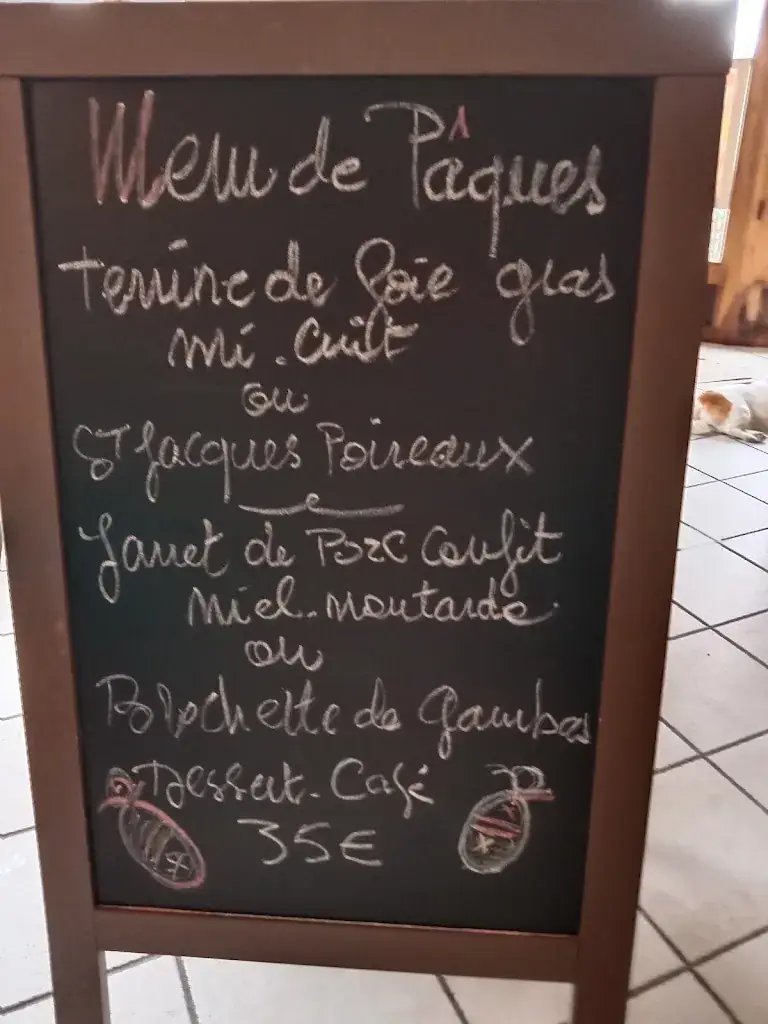 Menu de Pâques
Terrine de foie gras
mi-Cuit
ou
ST Jacques Poireaux
Jarret de Porc Confit
Miel-moutarde
ou
Brochette de Gambas
Dessert-Café
35€